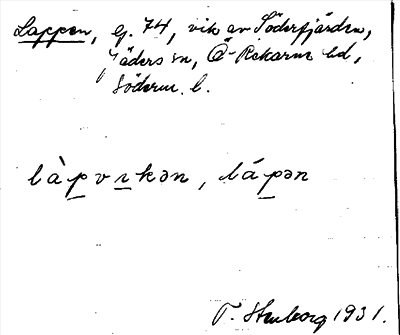 Lappen, G. 74, vik av Söderfjärden,
Jäders sn, Ö-Rekarne hd,
Söderm. l.
làpvɩkən, lápən
T. Stenborg 1931.